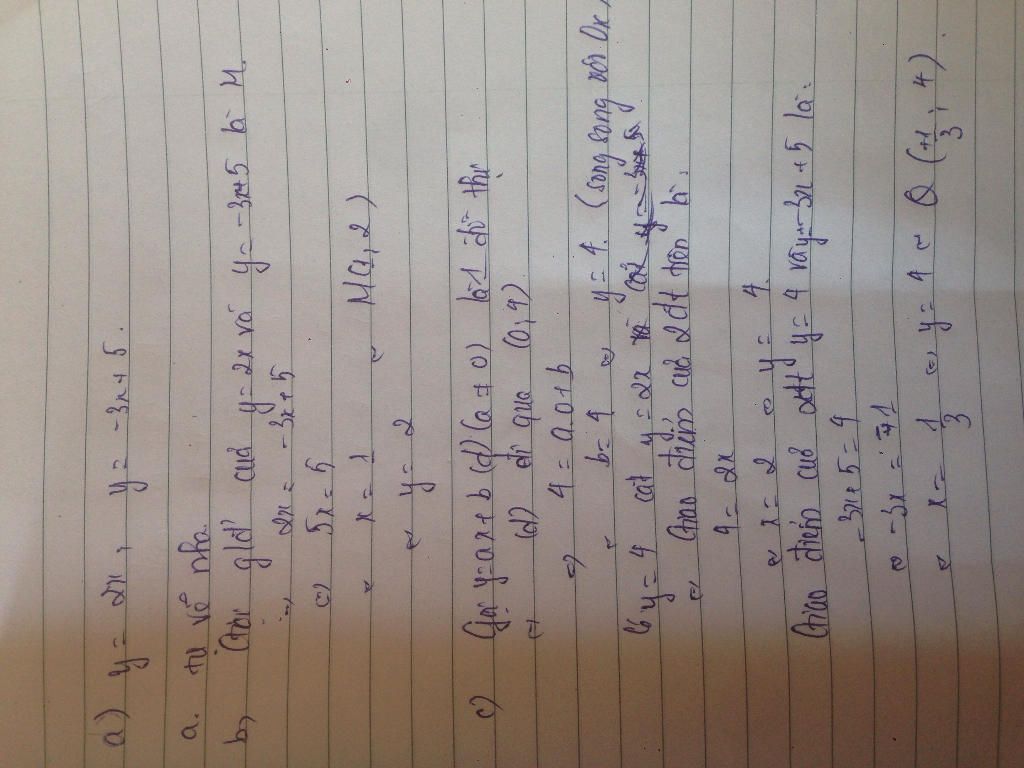 a) y = 2x, y = -3x + 5.
a. tự vẽ nha.
b, Gọi gđ' của y = 2x và y = -3x+5 là M.
=> 2x = -3x + 5
=> 5x = 5
x = 1 M(1, 2)
y = 2
c) Gọi y = ax + b (d) (a ≠ 0) là 1 đt thự
=> (d) đi qua (0, 4)
=> 4 = a.0 + b
b = 4 y = 4. (song song với Ox
y = 4 cắt y = 2x
Giao điểm của 2 đt trên là:
4 = 2x
x = 2 y = 4.
Giao điểm của 2 đt y = 4 và y = -3x + 5 là:
-3x + 5 = 4
-3x = -1
x = 1/3 => y = 4 Q (1/3; 4).